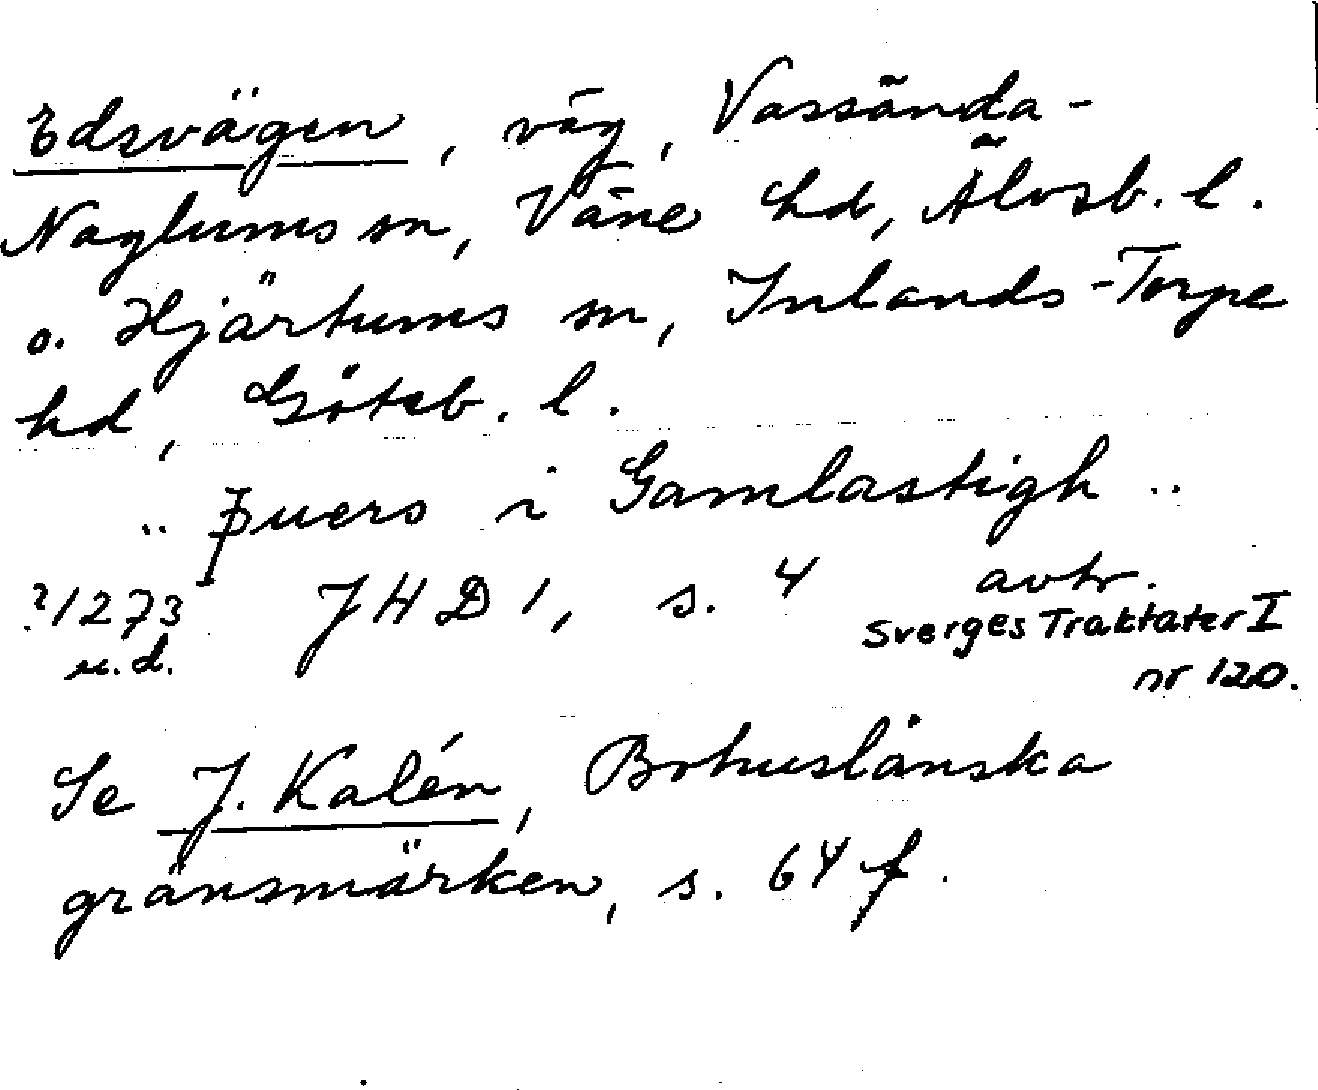 Edsvägen, väg, Vassända-
Naglums sn, Väne hd, Älvsb. l.
o. Hjärtums sn, Inlands-Torpe
hd, Göteb. l.
.. þuers i Gamlastigh ..
?1273 JHD 1, s. 4 avtr.
u.d. Sverges Traktater I
nr 120.
Se J. Kalén, Bohuslänska
gränsmärken, s. 64 f.